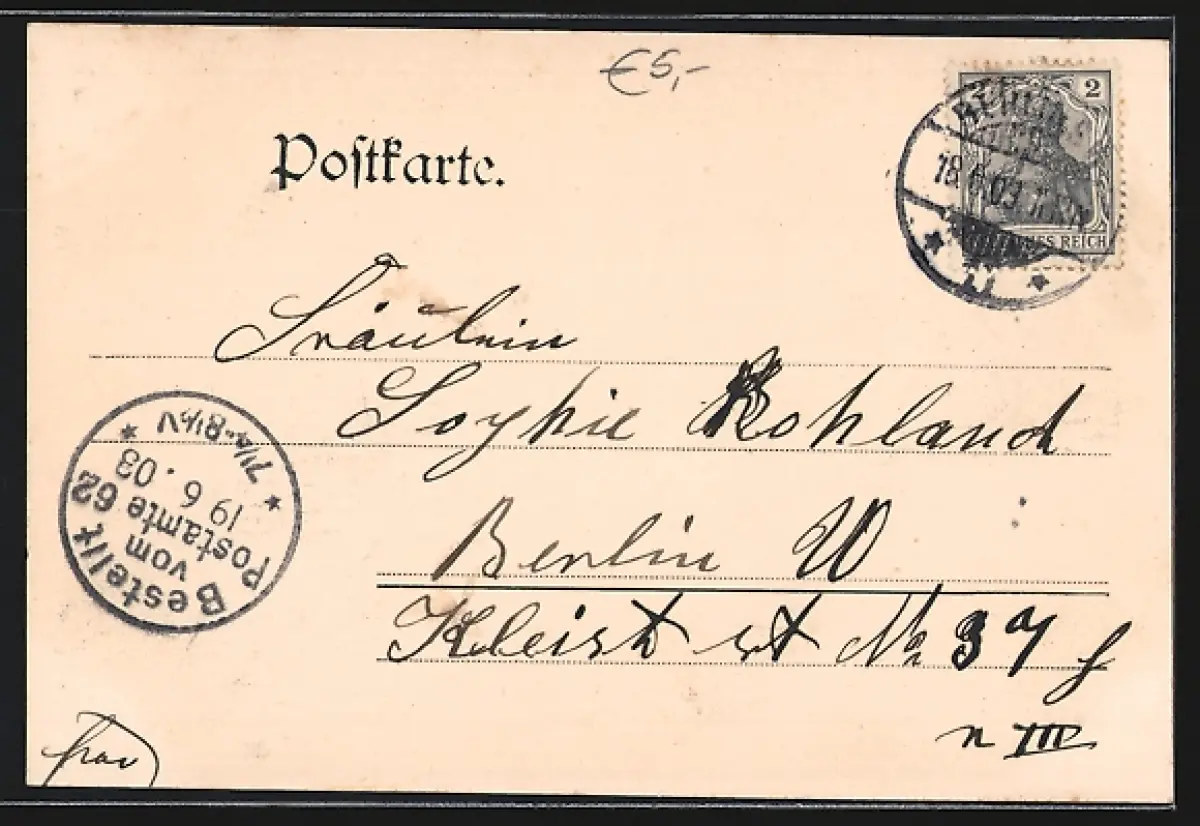 €5,-
2
BERLIN
18.6.03
DEUTSCHES REICH
Postkarte.
Fräulein
Sophie Rohland
Berlin W
Kleist st No 37
n III
Bestellt
vom
Postamte 62
19 6. 03
7¼-8½V